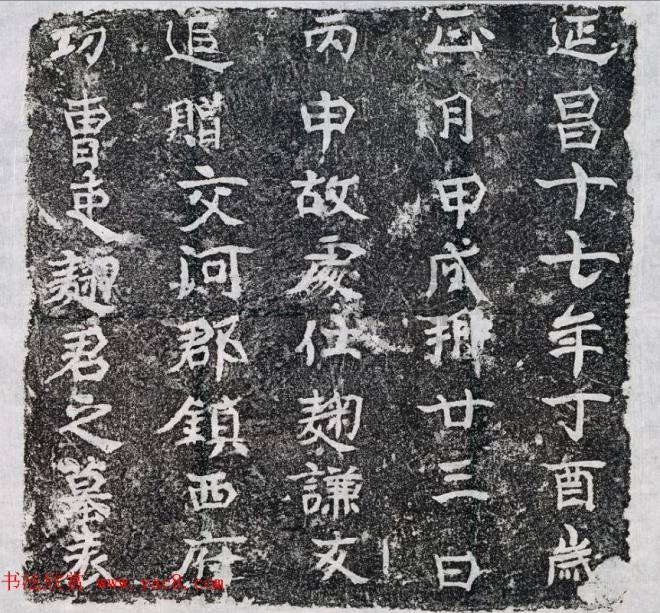 延昌十七年丁酉歲
正月甲戌朔廿三日
丙申故處仕麹謙友
追贈交河郡鎮西府
功曹吏麹君之墓表
书法欣赏 www.yac8.com